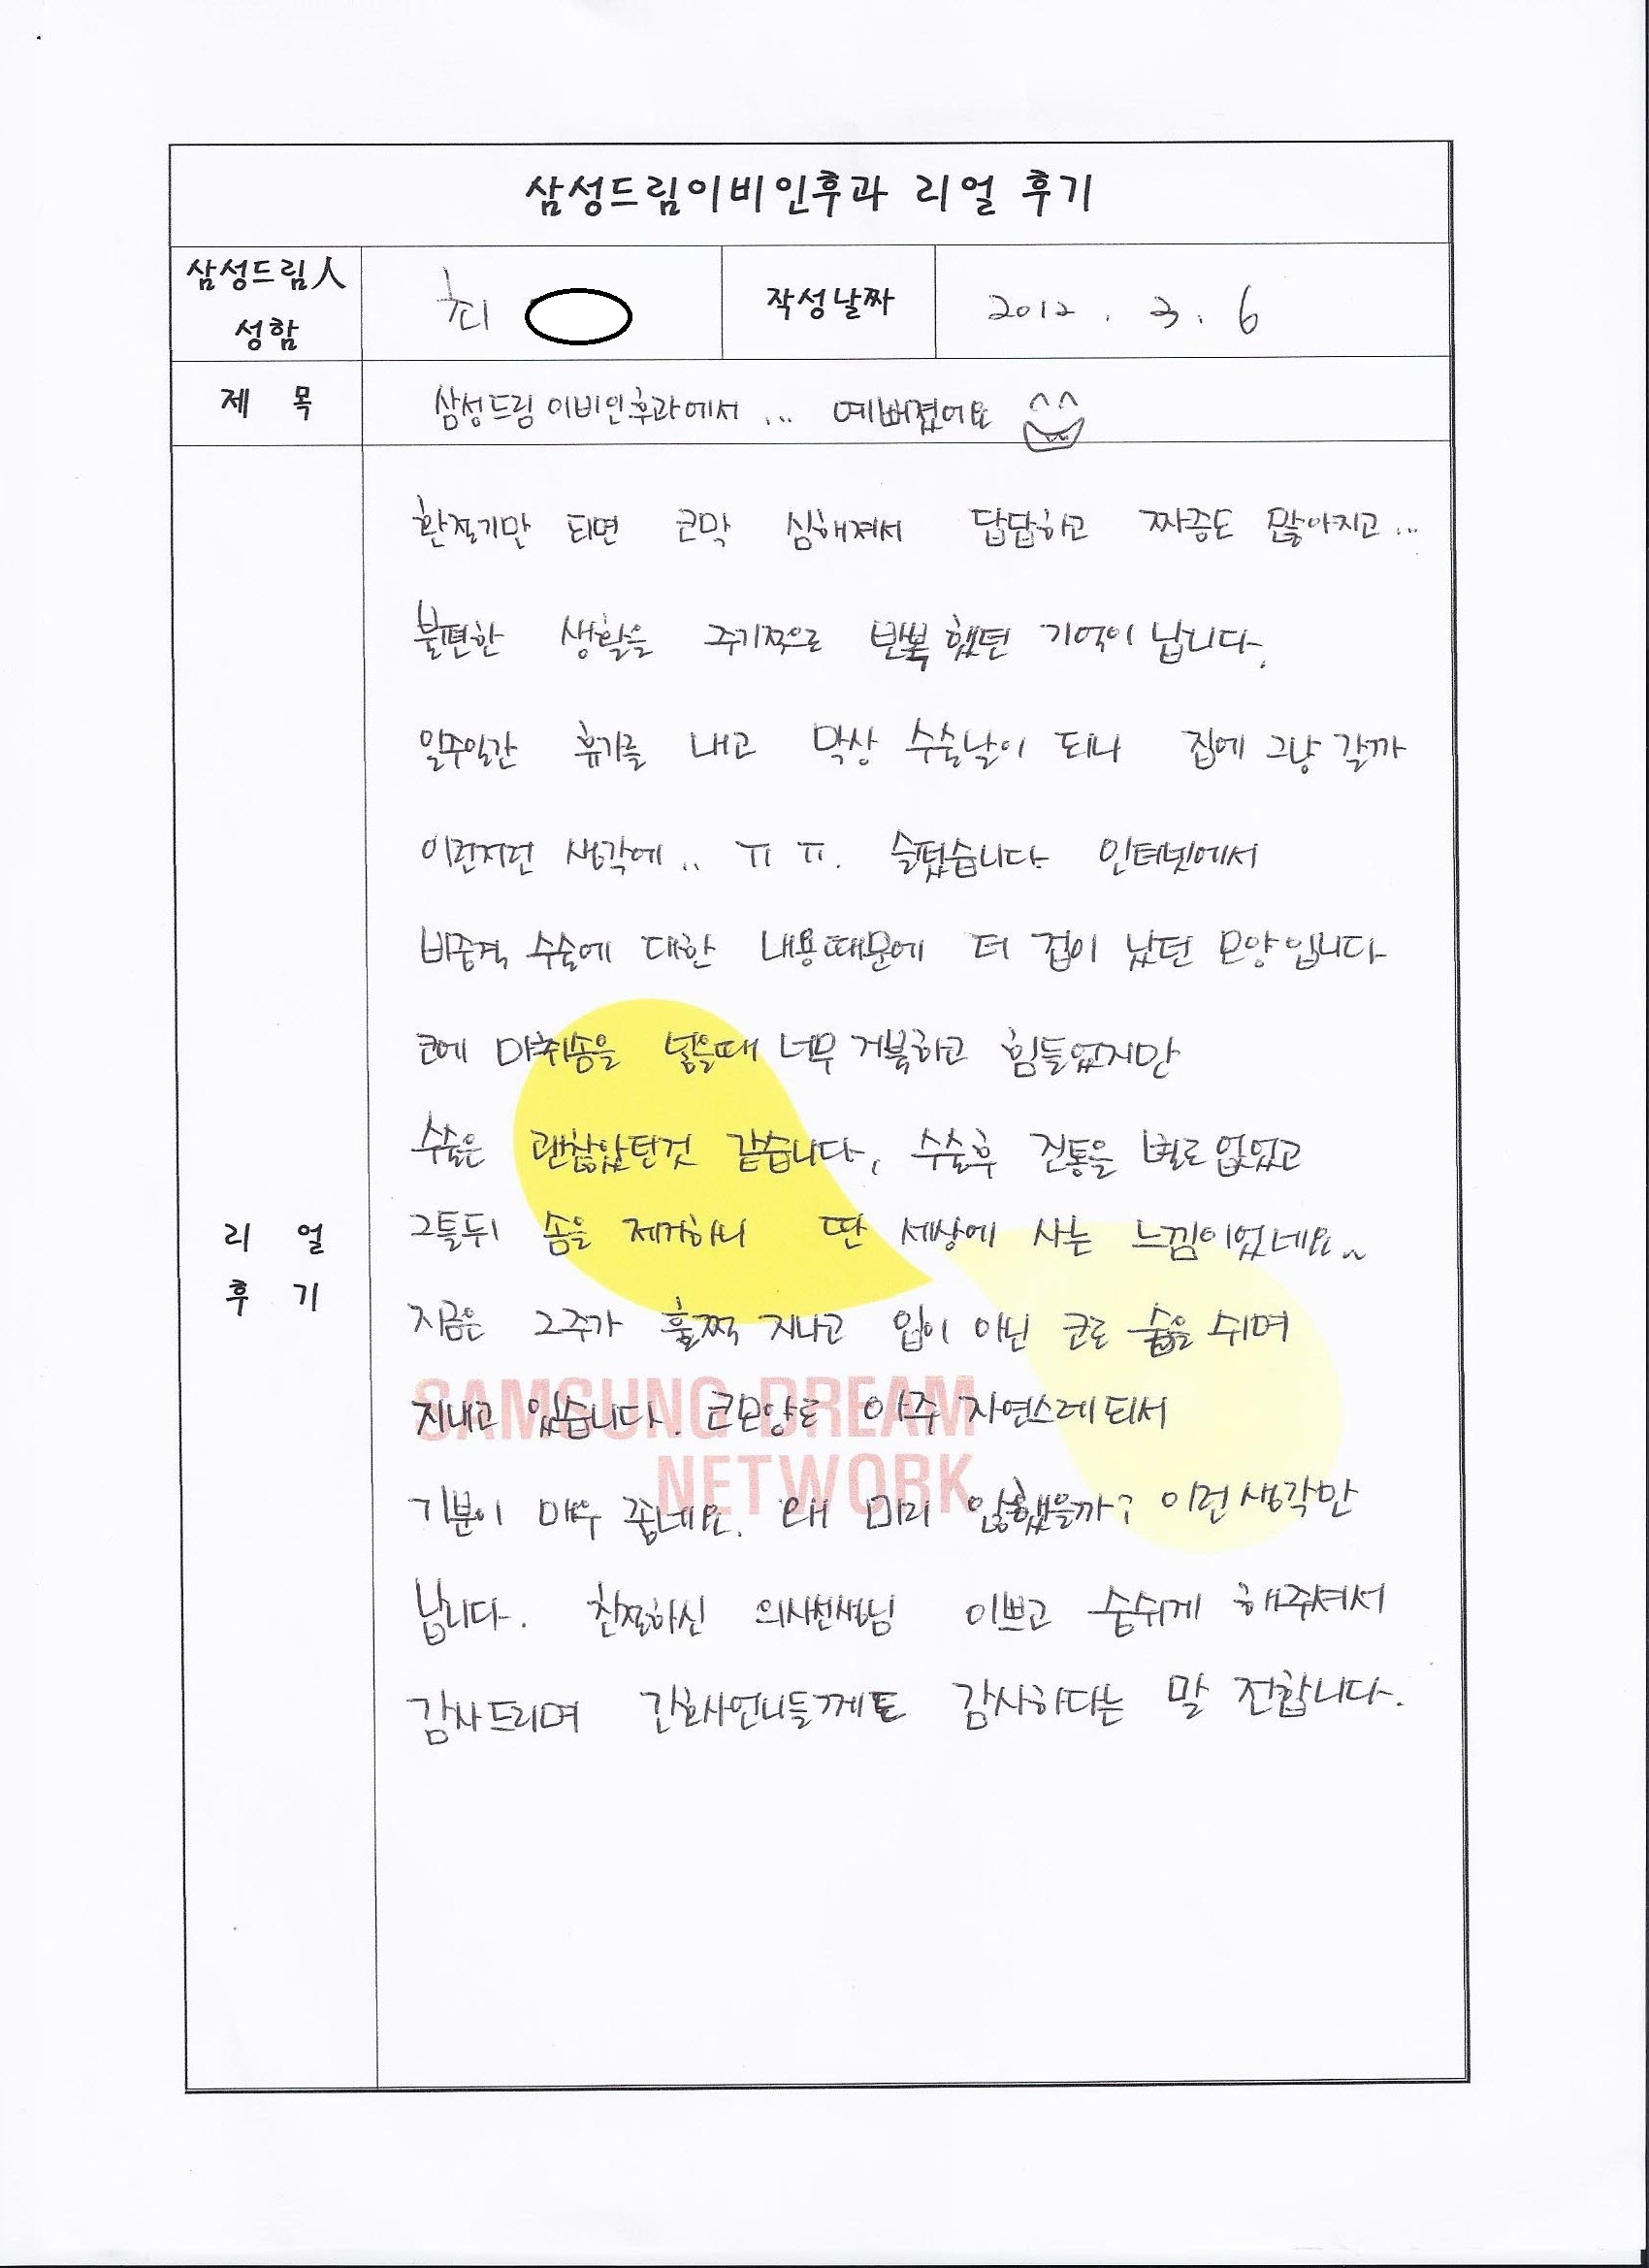 삼성드림이비인후과 리얼 후기
삼성드림人 성함 최 작성날짜 2012. 3. 6
제 목 삼성드림 이비인후과에서 ... 예뻐졌어요 ^^
환절기만 되면 코막 심해져서 답답하고 짜증도 많아지고...
불편한 생활을 주기적으로 반복했던 기억이 납니다.
일주일간 휴가를 내고 막상 수술날이 되니 집에 그냥 갈까
이런저런 생각에.. ㅠㅠ. 슬펐습니다 인터넷에서
비중격 수술에 대한 내용때문에 더 겁이 났던 모양입니다
코에 마취솜을 넣을때 너무 거북하고 힘들었지만
수술은 괜찮았던것 같습니다, 수술후 진통을 별로 없었고
리 얼 후 기
2틀뒤 솜을 제거하니 딴 세상에 사는 느낌이었네요~
지금은 2주가 훌쩍 지나고 입이 아닌 코로 숨을 쉬며
지내고 있습니다. 코모양로 아주 자연스레 되서
SAMSUNG DREAM
NETWORK
기분이 매우 좋네요. 왜 미리 않했을까? 이런생각만
납니다. 친절하신 의사선생님 이쁘고 숨쉬게 해주셔서
감사드리며 간호사언니들께도 감사하다는 말 전합니다.